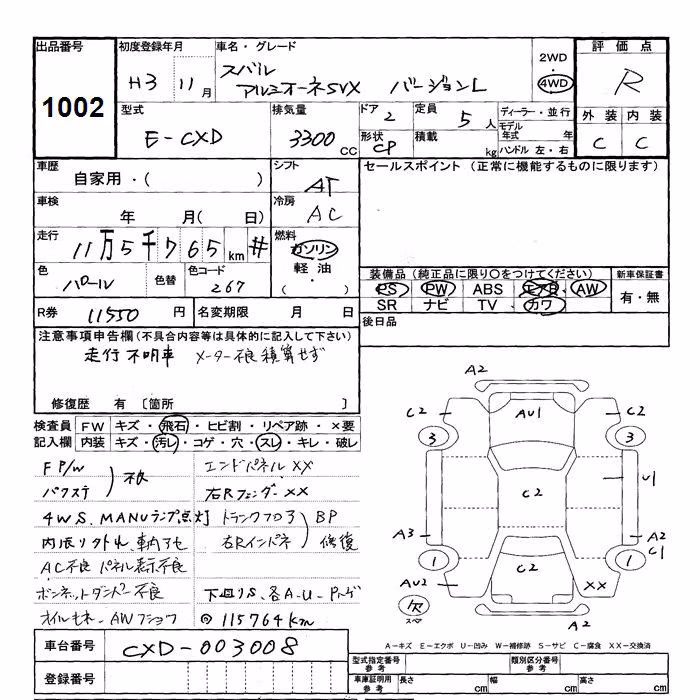 出品番号
1002
初度登録年月
H3 11月
車名・グレード
スバル
アルシオーネSVX バージョンL
2WD
4WD
評価点
R
外装 内装
C C
型式
E-CXD
排気量
3300 CC
ドア 2
形状 CP
定員 5人
積載 kg
ディーラー・並行
モデル年式 年
ハンドル 左・右
車歴
自家用・( )
シフト
AT
セールスポイント (正常に機能するものに限ります)
車検
年 月( 日)
冷房
AC
走行
11万5千765km #
燃料
ガソリン
軽油
( )
色
パール
色替
色コード
267
装備品(純正品に限り○をつけてください)
PS PW ABS エアB AW
SR ナビ TV カワ
新車保証書
有・無
R券 11550円
名変期限 月 日
後日品
注意事項申告欄(不具合内容等は具体的に記入して下さい)
走行不明車 メーター不良積算せず
修復歴 有 〔箇所 〕
検査員記入欄
FW キズ・飛石・ヒビ割・リペア跡・×要
内装 キズ・汚レ・コゲ・穴・スレ・キレ・破レ
F P/W
パワステ
不良
4WS、MANUランプ点灯
AC不良 パネル表示不良
ボンネットダンパー不良
オイルモレ
エンドパネルXX
右RフェンダーXX
トランクフロア
右Rインパネ
BP修復
下廻りS、各A-U-P
◎115764km
A2
C2 AU1 C2
3 3
C2 U1
A3 A2
C1
1 1
C2
AU2 XX
欠
スペア
A2
車台番号 CXD-003008
登録番号
A-キズ E-エクボ U-凹み W-補修跡 S-サビ C-腐食 XX-交換済
型式指定番号 参考
類別区分番号 参考
車庫証明用 参考
長さ cm 幅 cm 高さ cm